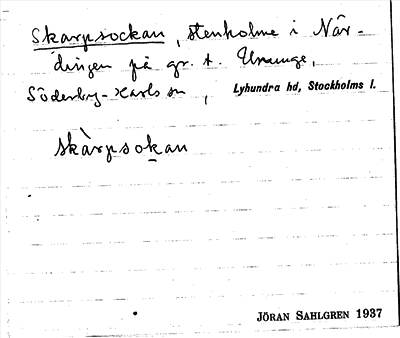 Skarpsockan, stenholme i När-
dingen på gr. t. Ununge,
Söderby-Karls sn, Lyhundra hd, Stockholms l.
skàrpsokan
JÖRAN SAHLGREN 1937